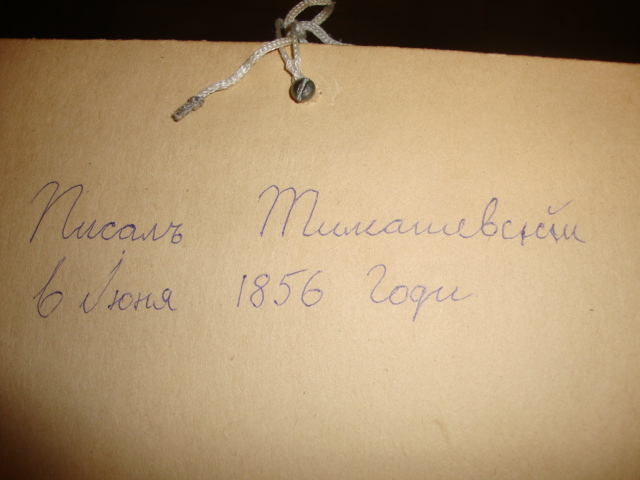 Писалъ Тимашевскій
6 Іюня 1856 Годи